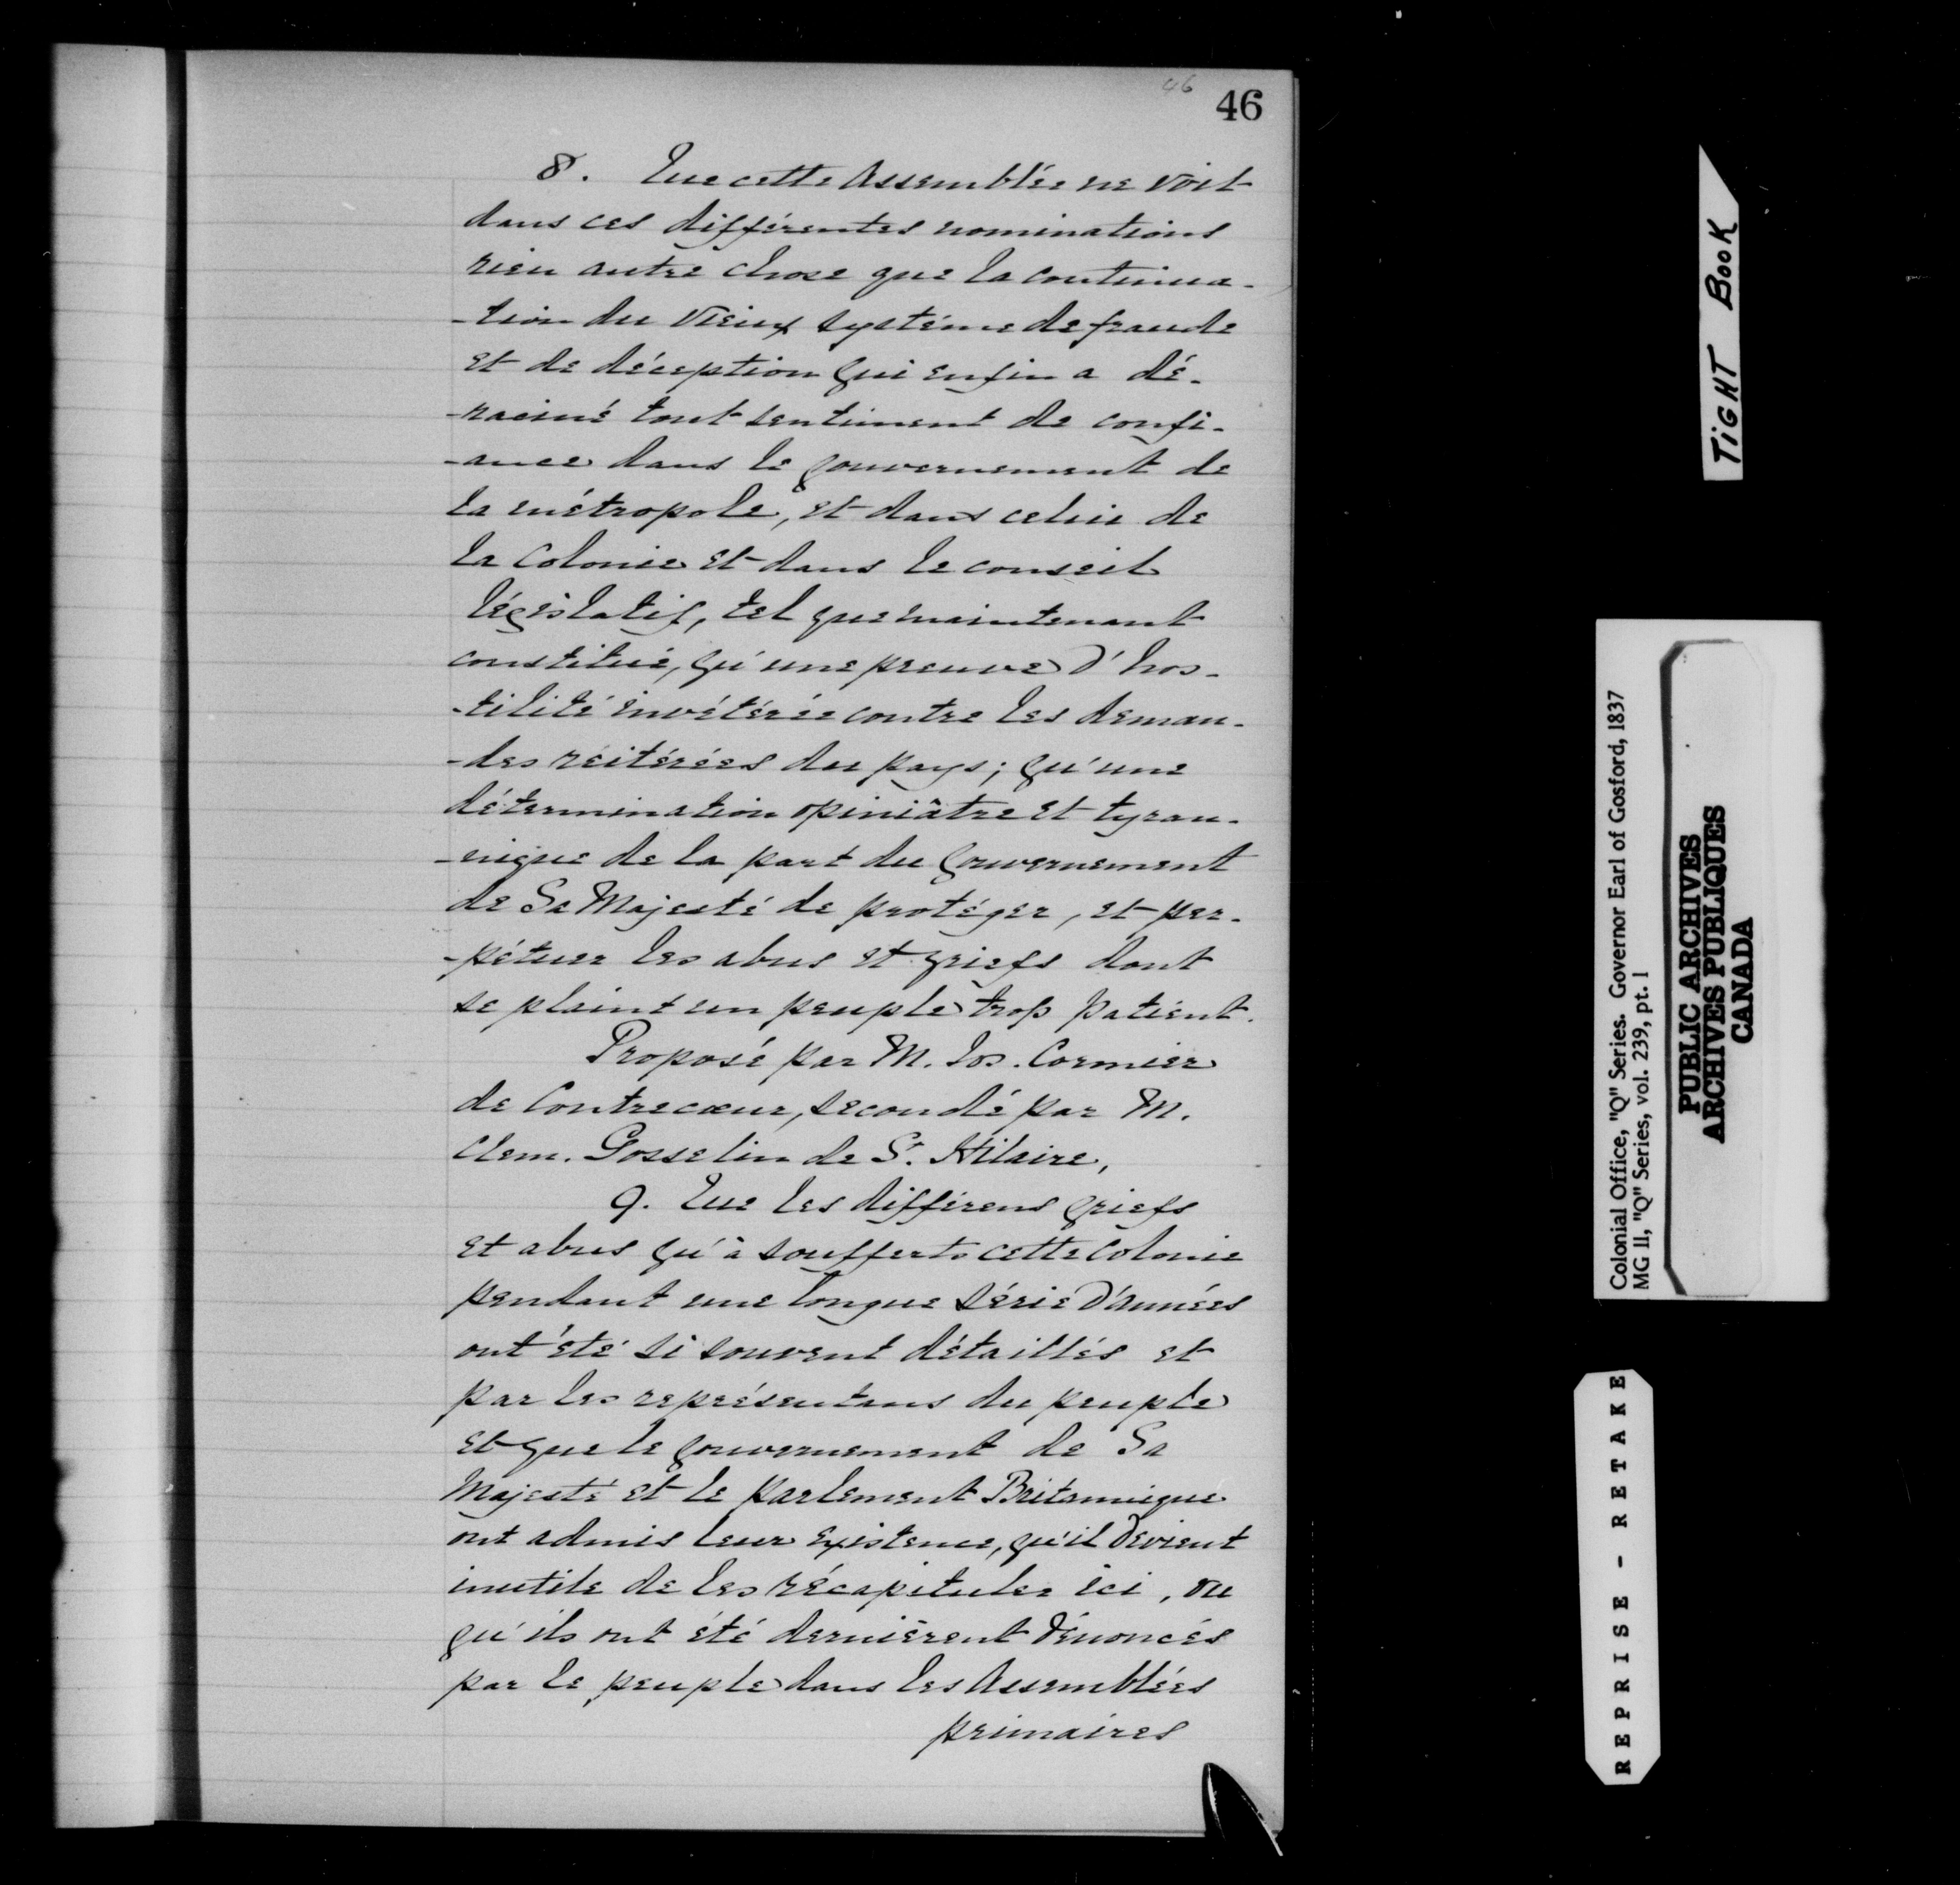 46
46
8. Que cette Assemblée ne voit
dans ces différentes nominations
rien autre chose que la continua-
-tion du vieux système de fraude
et de déception qui enfin a dé-
-raciné tout sentiment de confi-
-ance dans le gouvernement de
la métropole, et dans celui de
la Colonie et dans le conseil
législatif, tel que maintenant
constitué, qu'une preuve d'hos-
-tilité invétérée contre les deman-
-des réitérées du pays; qu'une
détermination opiniâtre et tyran-
-nique de la part du Gouvernement
de Sa Majesté de protéger, et per-
-pétuer les abus et griefs dont
se plaint un peuple trop patient.
Proposé par M. Jos. Cormier
de Contrecœur, secondé par M.
Clem. Gosselin de St. Hilaire,
9. Que les différens griefs
et abus qu'à soufferts cette Colonie
pendant une longue série d'années
ont été si souvent détaillés et
par les représentans du peuple
et que le Gouvernement de Sa
Majesté et le parlement Britannique
ont admis leur existence, qu'il devient
inutile de les récapituler ici, vu
qu'ils ont été dernièrent dénoncés
par le peuple dans les Assemblées
primaires
TIGHT BOOK
Colonial Office, "Q" Series. Governor Earl of Gosford, 1837
MG 11, "Q" Series, vol. 239, pt. 1
PUBLIC ARCHIVES
ARCHIVES PUBLIQUES
CANADA
REPRISE - RETAKE